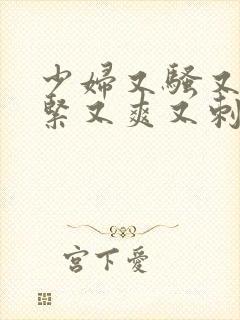 少婦又騷又
緊又爽又刺
宮下愛